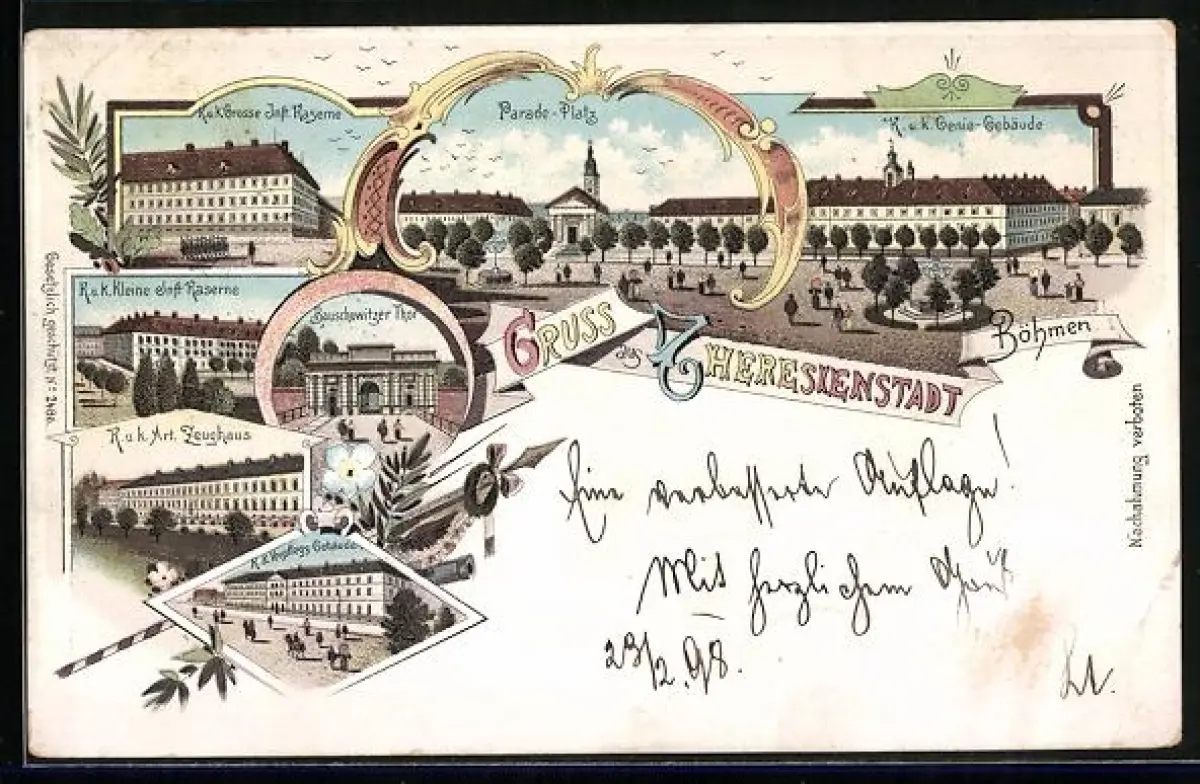 K. u. k. Grosse Inft. Kaserne
Parade-Platz
K. u. k. Genie-Gebäude
K. u. k. Kleine Inft. Kaserne
Bauschowitzer Thor
GRUSS aus THERESIENSTADT
Böhmen
K. u. k. Art. Zeughaus
K. u. k. Verpflegs-Gebäude
Gesetzlich geschützt No. 2480.
Nachahmung verboten
Eine verbesserte Auflage!
Mit herzlichem Gruß
23/2. 98.